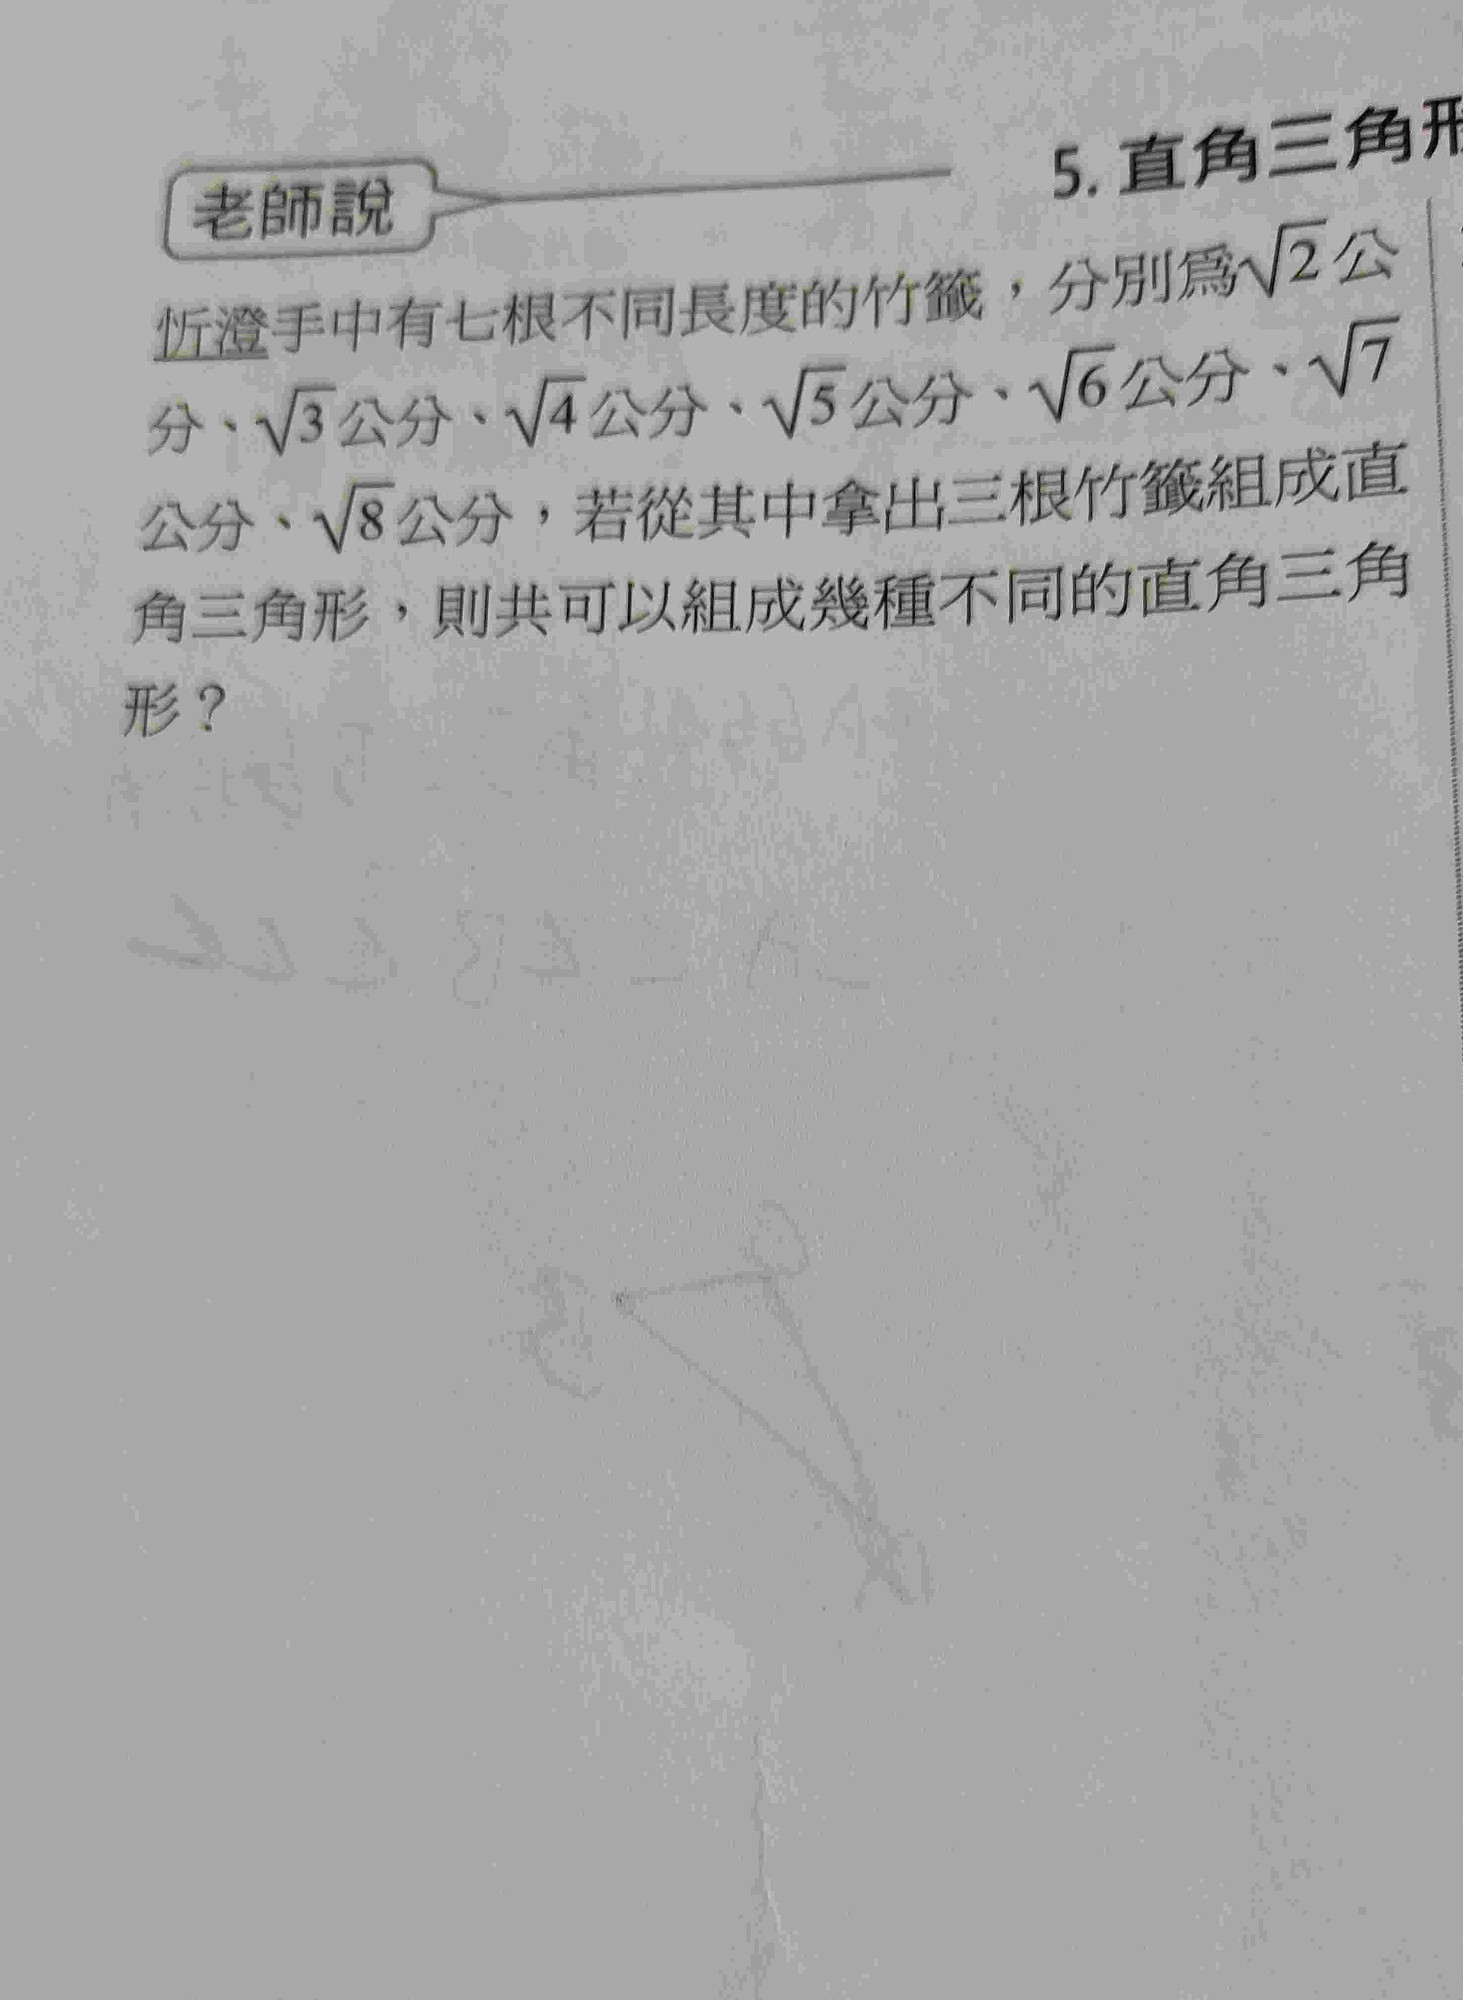 5. 直角三角形
老師說
忻澄手中有七根不同長度的竹籤，分別為√2公
分、√3公分、√4公分、√5公分、√6公分、√7
公分、√8公分，若從其中拿出三根竹籤組成直
角三角形，則共可以組成幾種不同的直角三角
形？